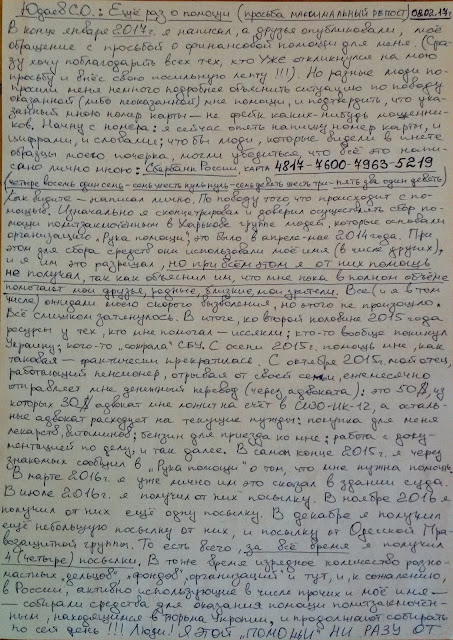 Юдаев С.О.: Ещё раз о помощи (просьба МАКСИМАЛЬНЫЙ РЕПОСТ) 08.02.17г.
В конце января 2017г. я написал, а друзья опубликовали, моё
обращение с просьбой о финансовой помощи для меня. (Сра-
зу хочу поблагодарить всех тех, кто уже откликнулся на мою
просьбу и внёс свою посильную лепту!!!) Но разные люди по-
просили меня немного подробнее объяснить ситуацию по поводу
оказанной (либо неоказанной) мне помощи, и подтвердить, что ука-
занный мною номер карты — не фейк каких-нибудь мошенни-
ков. Начну с номера: я сейчас опять напишу номер карты, и
цифрами, и словами; что бы люди, которые видели и имеют
образцы моего почерка, могли убедиться, что всё это напи-
сано лично мною: Сбербанк России, карта 4817-7600-7963-5219
(четыре восемь один семь - семь шесть нуль нуль - семь девять шесть три - пять два один девять)
Как видите — написал лично. По поводу того, что происходит с по-
мощью. Изначально я сконцентрировал и доверил осуществлять сбор по-
мощи политзаключённым в Харькове группе людей, которые основали
организацию "Рука помощи"; это было в апреле-мае 2014 года. При
этом для сбора средств они использовали моё имя (в числе других),
и я им это разрешал, но при всём этом я от них помощь
не получал, так как объяснил им, что мне пока в полном объёме
помогают мои друзья, родные, близкие, мои зрители. Все (и я в том
числе) ожидали моего скорого вызволения, но этого не произошло.
Всё слишком затянулось. В итоге, ко второй половине 2015 года
ресурсы у тех, кто мне помогал — иссякли; кто-то вообще покинул
Украину; кого-то "сожрала" СБУ. С осени 2015г. помощь мне, как
таковая — фактически прекратилась. С октября 2015г. мой отец,
работающий пенсионер, отрывая от своей семьи, ежемесячно
отправляет мне денежный перевод (через адвоката): это 50$, из
которых 30$ адвокат мне ложит на счёт в СИЗО-ИК-12, а осталь-
ные адвокат расходует на текущие нужды: покупка для меня
лекарств, витаминов; бензин для приезда ко мне; работа с доку-
ментацией по делу, и так далее. В самом конце 2015г. я через
знакомых сообщил в "Рука помощи" о том, что мне нужна помощь.
В марте 2016г. я уже лично им это сказал в здании суда.
В июле 2016г. я получил от них посылку. В ноябре 2016 я
получил от них ещё одну посылку. В декабре я получил
ещё небольшую посылку от них, и посылку от Одесской Пра-
возащитной группы. То есть всего, за всё время я получил
4 (четыре) посылки. В тоже время изрядное количество разно-
мастных "дельцов", фондов, организаций и тут, и, к сожалению,
в России, активно использующие в числе прочих и моё имя —
— собирали средства для оказания помощи политзаключён-
ным, находящимся в тюрьмах Укропии, и продолжают собирать
по сей день!!! Люди! Я этой "помощи" НИ РАЗУ ОТ